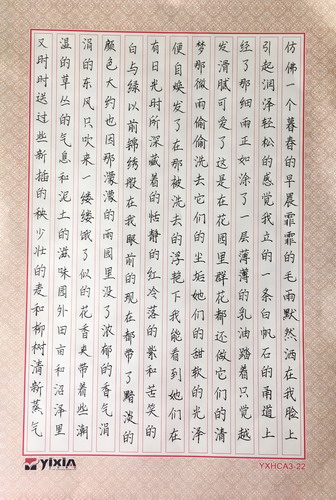 仿佛一个暮春的早晨霏霏的毛雨默然洒在我脸上
引起润泽轻松的感觉我立的一条白帆石的甬道上
经了那细雨正如涂了一层薄薄的乳油踏着只觉越
发滑腻可爱了这是在花园里群花都还做它们的清
梦那微雨偷偷洗去它们的尘垢她们的甜软的光泽
便自焕发了在那被洗去的浮艳下我能看到她们在
有日光时所深藏着的恬静的红冷落的紫和苦笑的
白与绿以前锦绣般在我眼前的现在都带了黯淡的
颜色大约也因那濛濛的雨园里没了浓郁的香气涓
涓的东风只吹来一缕缕饿了似的花香夹带着些潮
温的草丛的气息和泥土的滋味园外田亩和沼泽里
又时时送过些新插的秧少壮的麦和柳树清新蒸气
yixin
YXHCA3-22